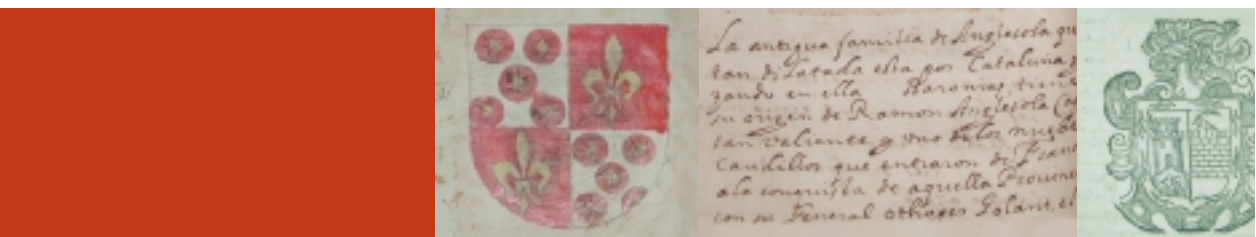 La antigua familia de Anglesola qu
tan dilatada esta por Cataluña
zando en ella Baronias, tiene
su origen de Ramon Anglesola
tan valiente y uno de los
Caudillos que entraron de Fran
a la conquista de aquella Provinc
con su General